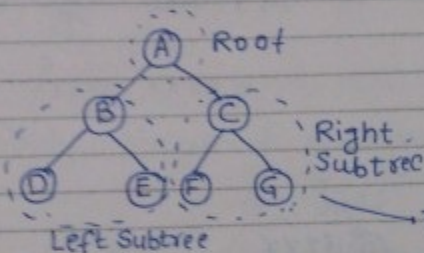 A Root
B C
Right
Subtree
D E F G
Left Subtree